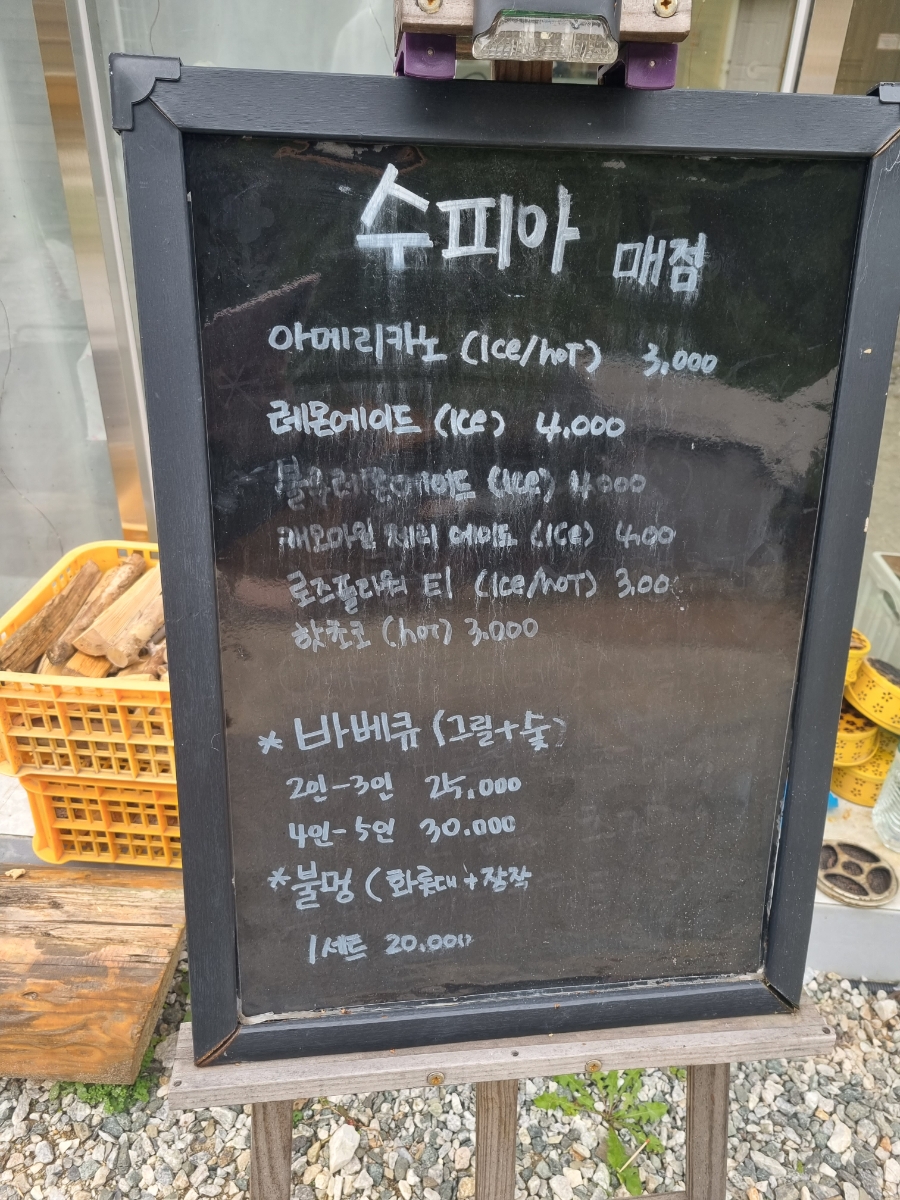 수피아 매점
아메리카노 (Ice/hot) 3,000
레몬에이드 (Ice) 4.000
블루레몬에이드 (Ice) 4000
로즈플라워 티 (Ice/hot) 3,00
핫초코 (hot) 3.000
* 바베큐 (그릴+숯)
2인-3인 25,000
4인-5인 30.000
*불멍 (화롯대+장작
1세트 20.000